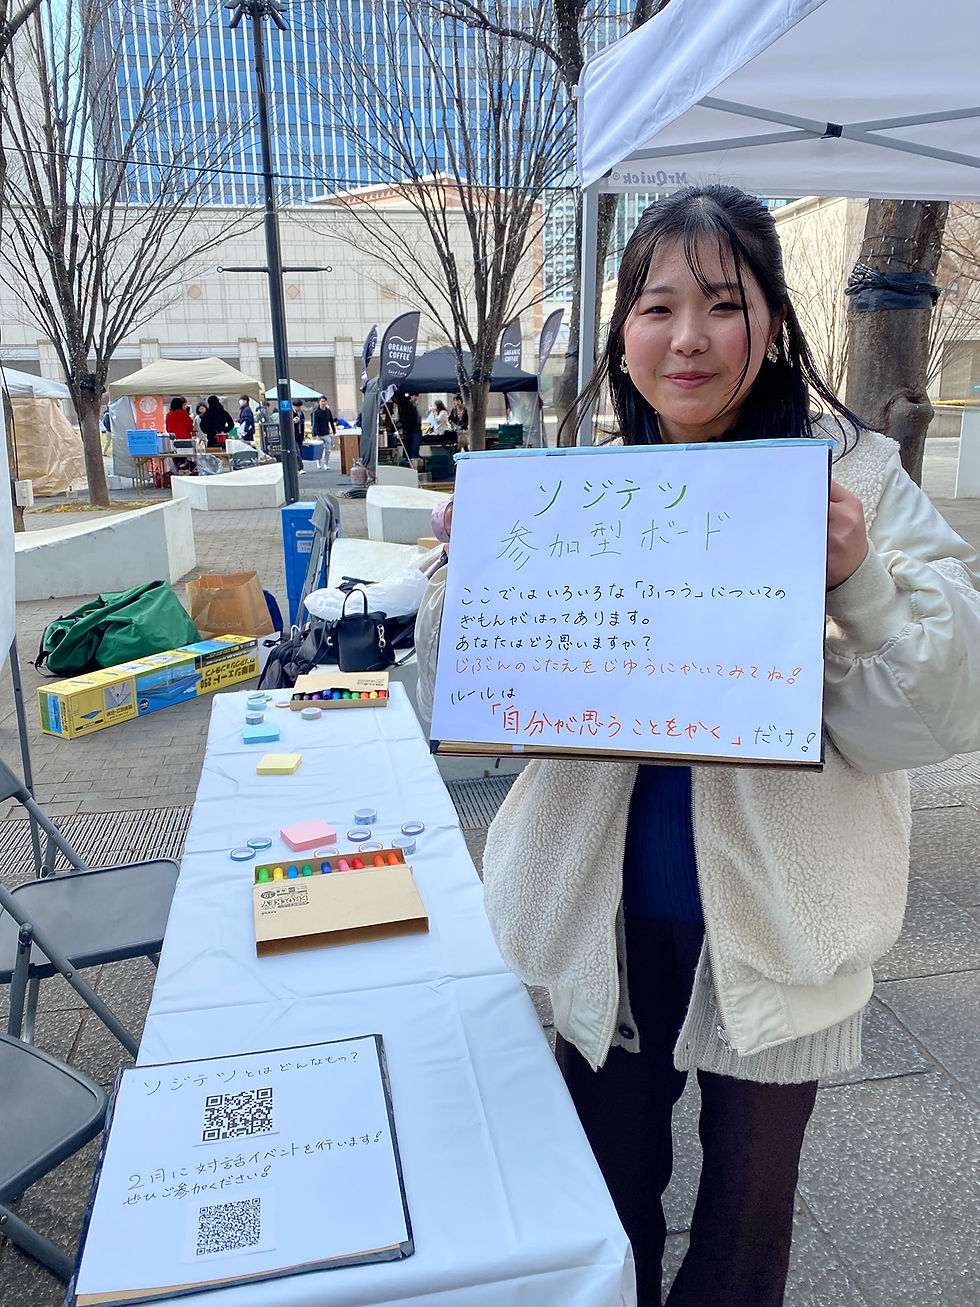 MrQuick®
ORGANIC
COFFEE
ORGANIC
COFFEE
ソジテツ
参加型ボード
ここではいろいろな「ふつう」についての
ぎもんがはってあります。
あなたはどう思いますか？
じぶんのこたえをじゆうにかいてみてね!
ルールは
「自分が思うことをかく」だけ!
PROCKEY
ソジテツとはどんなもの？
2月に対話イベントを行います!
ぜひご参加ください!